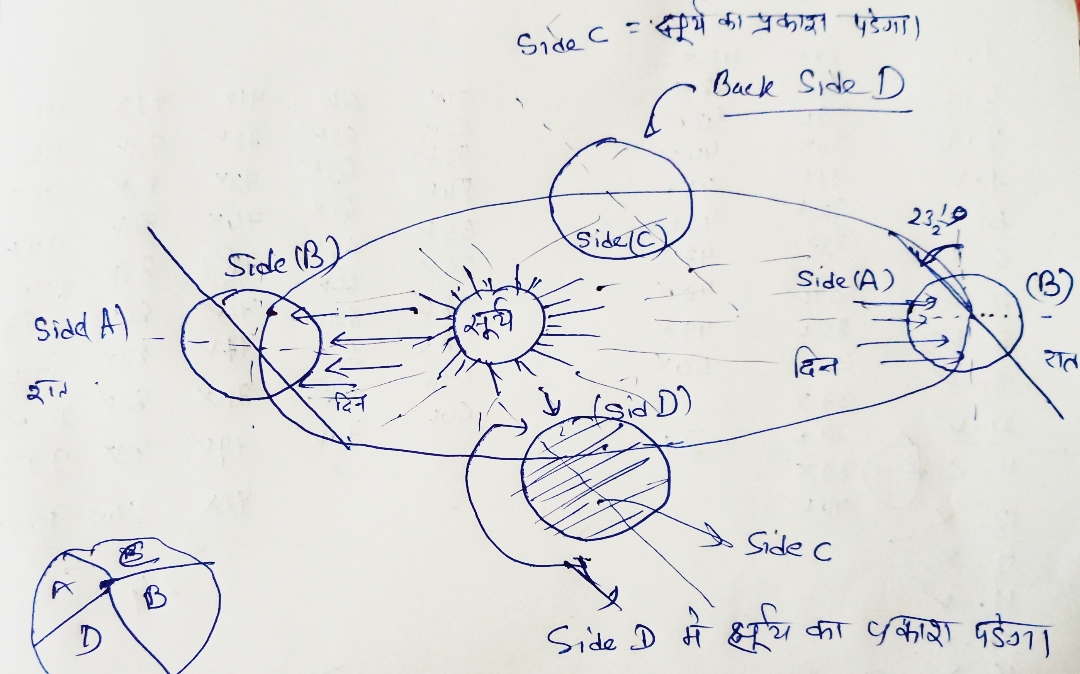 Side C = सूर्य का प्रकाश पडेगा।
Back Side D
Side(C)
23½°
Side(B)
Side(A)
(B)
Side(A)
सूर्य
रात
दिन
रात
दिन
(Sid D)
Side C
A
B
D
Side D मे सूर्य का प्रकाश पडेगा।